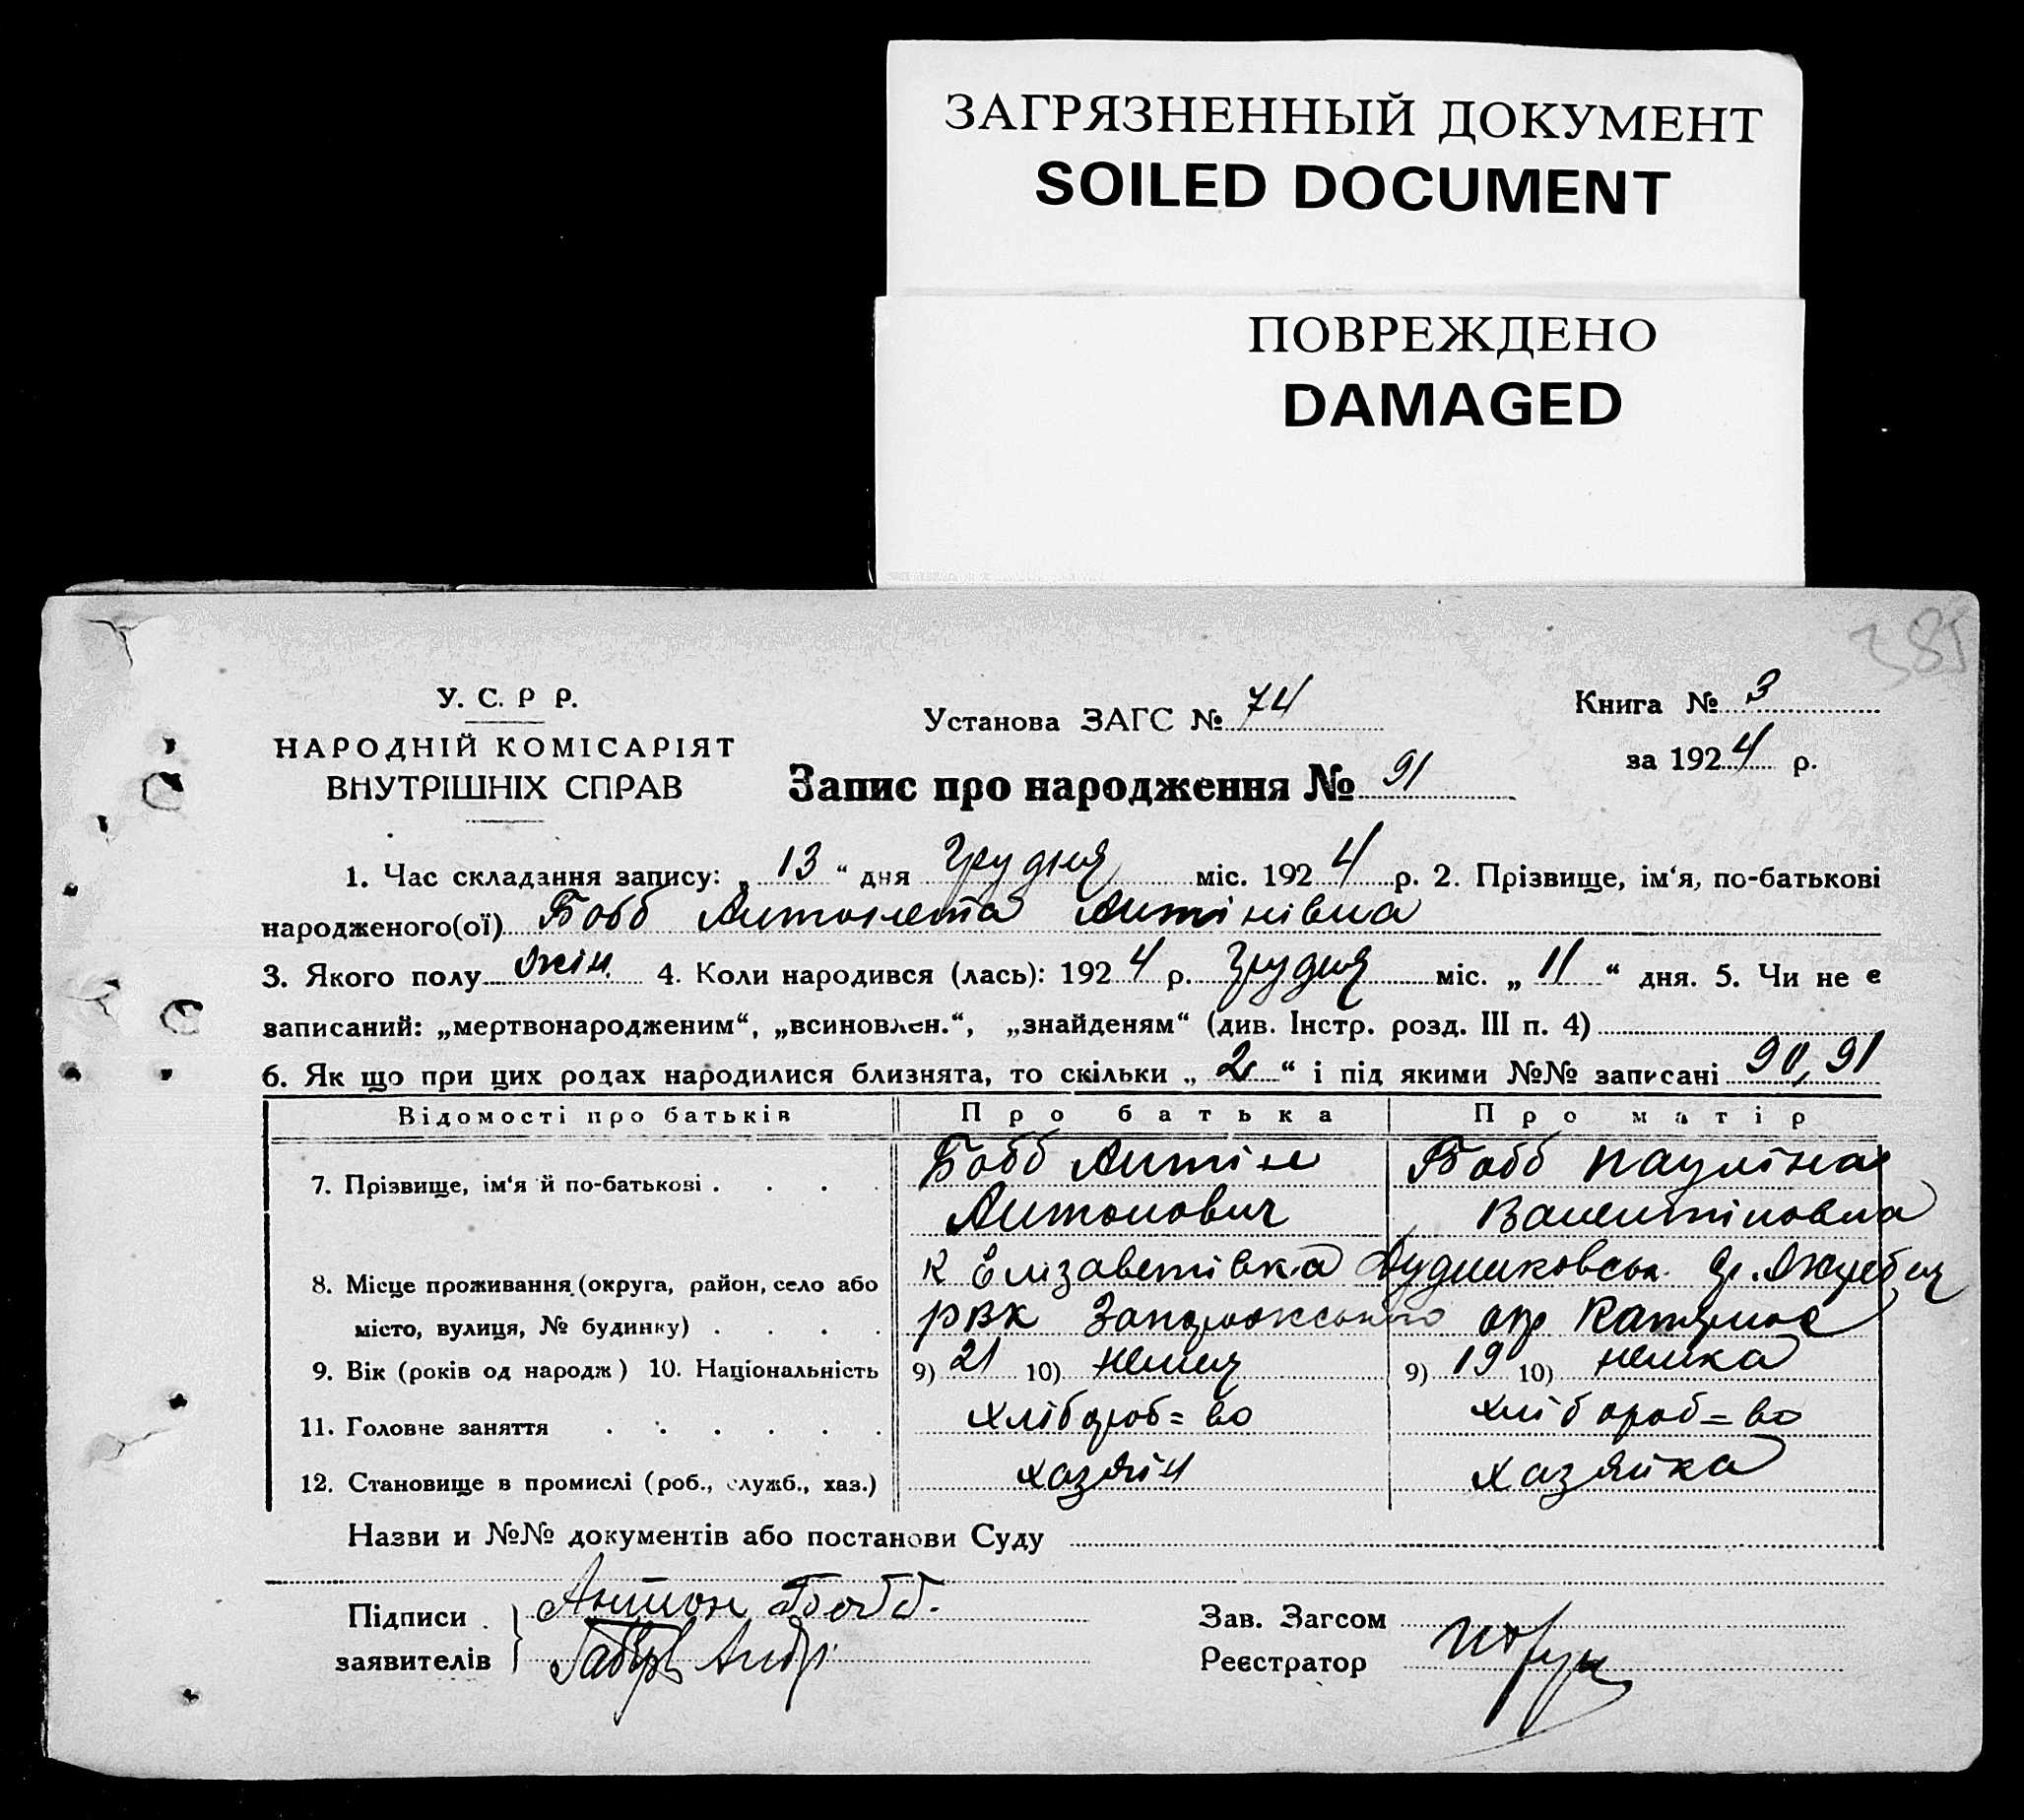 ЗАГРЯЗНЕННЫЙ ДОКУМЕНТ
SOILED DOCUMENT
ПОВРЕЖДЕНО
DAMAGED
385
У. С. Р Р.
НАРОДНІЙ КОМІСАРІЯТ
ВНУТРІШНІХ СПРАВ
Установа ЗАГС № 74
Книга № 3
за 1924 р.
Запис про народження № 91
1. Час складання запису: „ 13 “ дня Грудня міс. 1924 р. 2. Прізвище, ім‘я, по-батькові
народженого(ої) Бобб Антонета Антінівна
3. Якого полу жін. 4. Коли народився (лась): 1924 р. Грудня міс. „ 11 “ дня. 5. Чи не є
записаний: „мертвонародженим“, „всиновлен.“, „знайденям“ (див. Інстр. розд. III п. 4)
6. Як що при цих родах народилися близнята, то скільки „ 2 “ і під якими №№ записані 90, 91
Відомості про батьків Про батька Про матір
7. Прізвище, ім‘я й по-батькові . . . . Бобб Антін Бобб Пауліна
Антонович Валентіновна
8. Місце проживання (округа, район, село або к Єлізаветівка
місто, вулиця, № будинку) . . . . рвк Запорожського окр
9. Вік (років од народж) 10. Національність 9) 21 10) немец 9) 19 10) немка
11. Головне заняття . . . . . . хлібороб=во хлібороб=во
12. Становище в промислі (роб., служб., хаз.) хазяін хазяйка
Назви и №№ документів або постанови Суду
Підписи . Антон Бобб.
заявителів
Зав. Загсом
Реєстратор